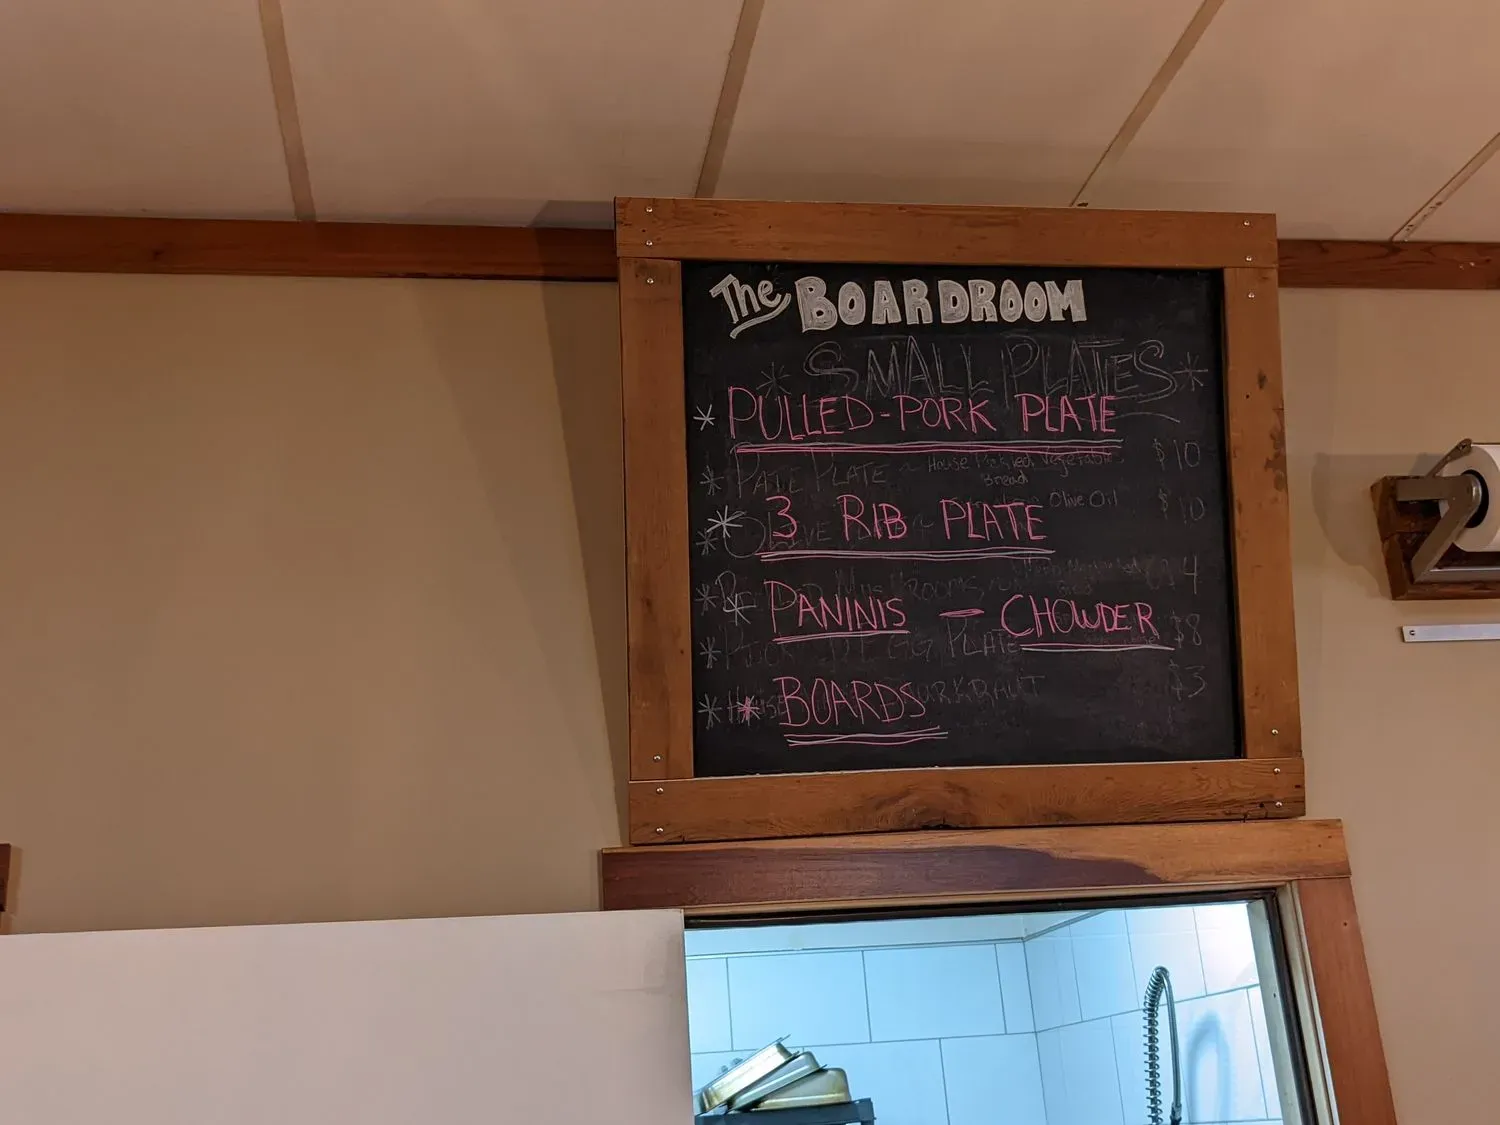 The BOARDROOM
* SMALL PLATES *
* PULLED-PORK PLATE
* PATE PLATE ~ House Pickled Vegetables, $10
Bread
Olive Oil $10
* 3 RIB PLATE
* OLIVE
* MUSHROOMS, $4
* PANINIS - CHOWDER
* EGG PLATE $8
* BOARDS
* HOUSE KRAUT $3